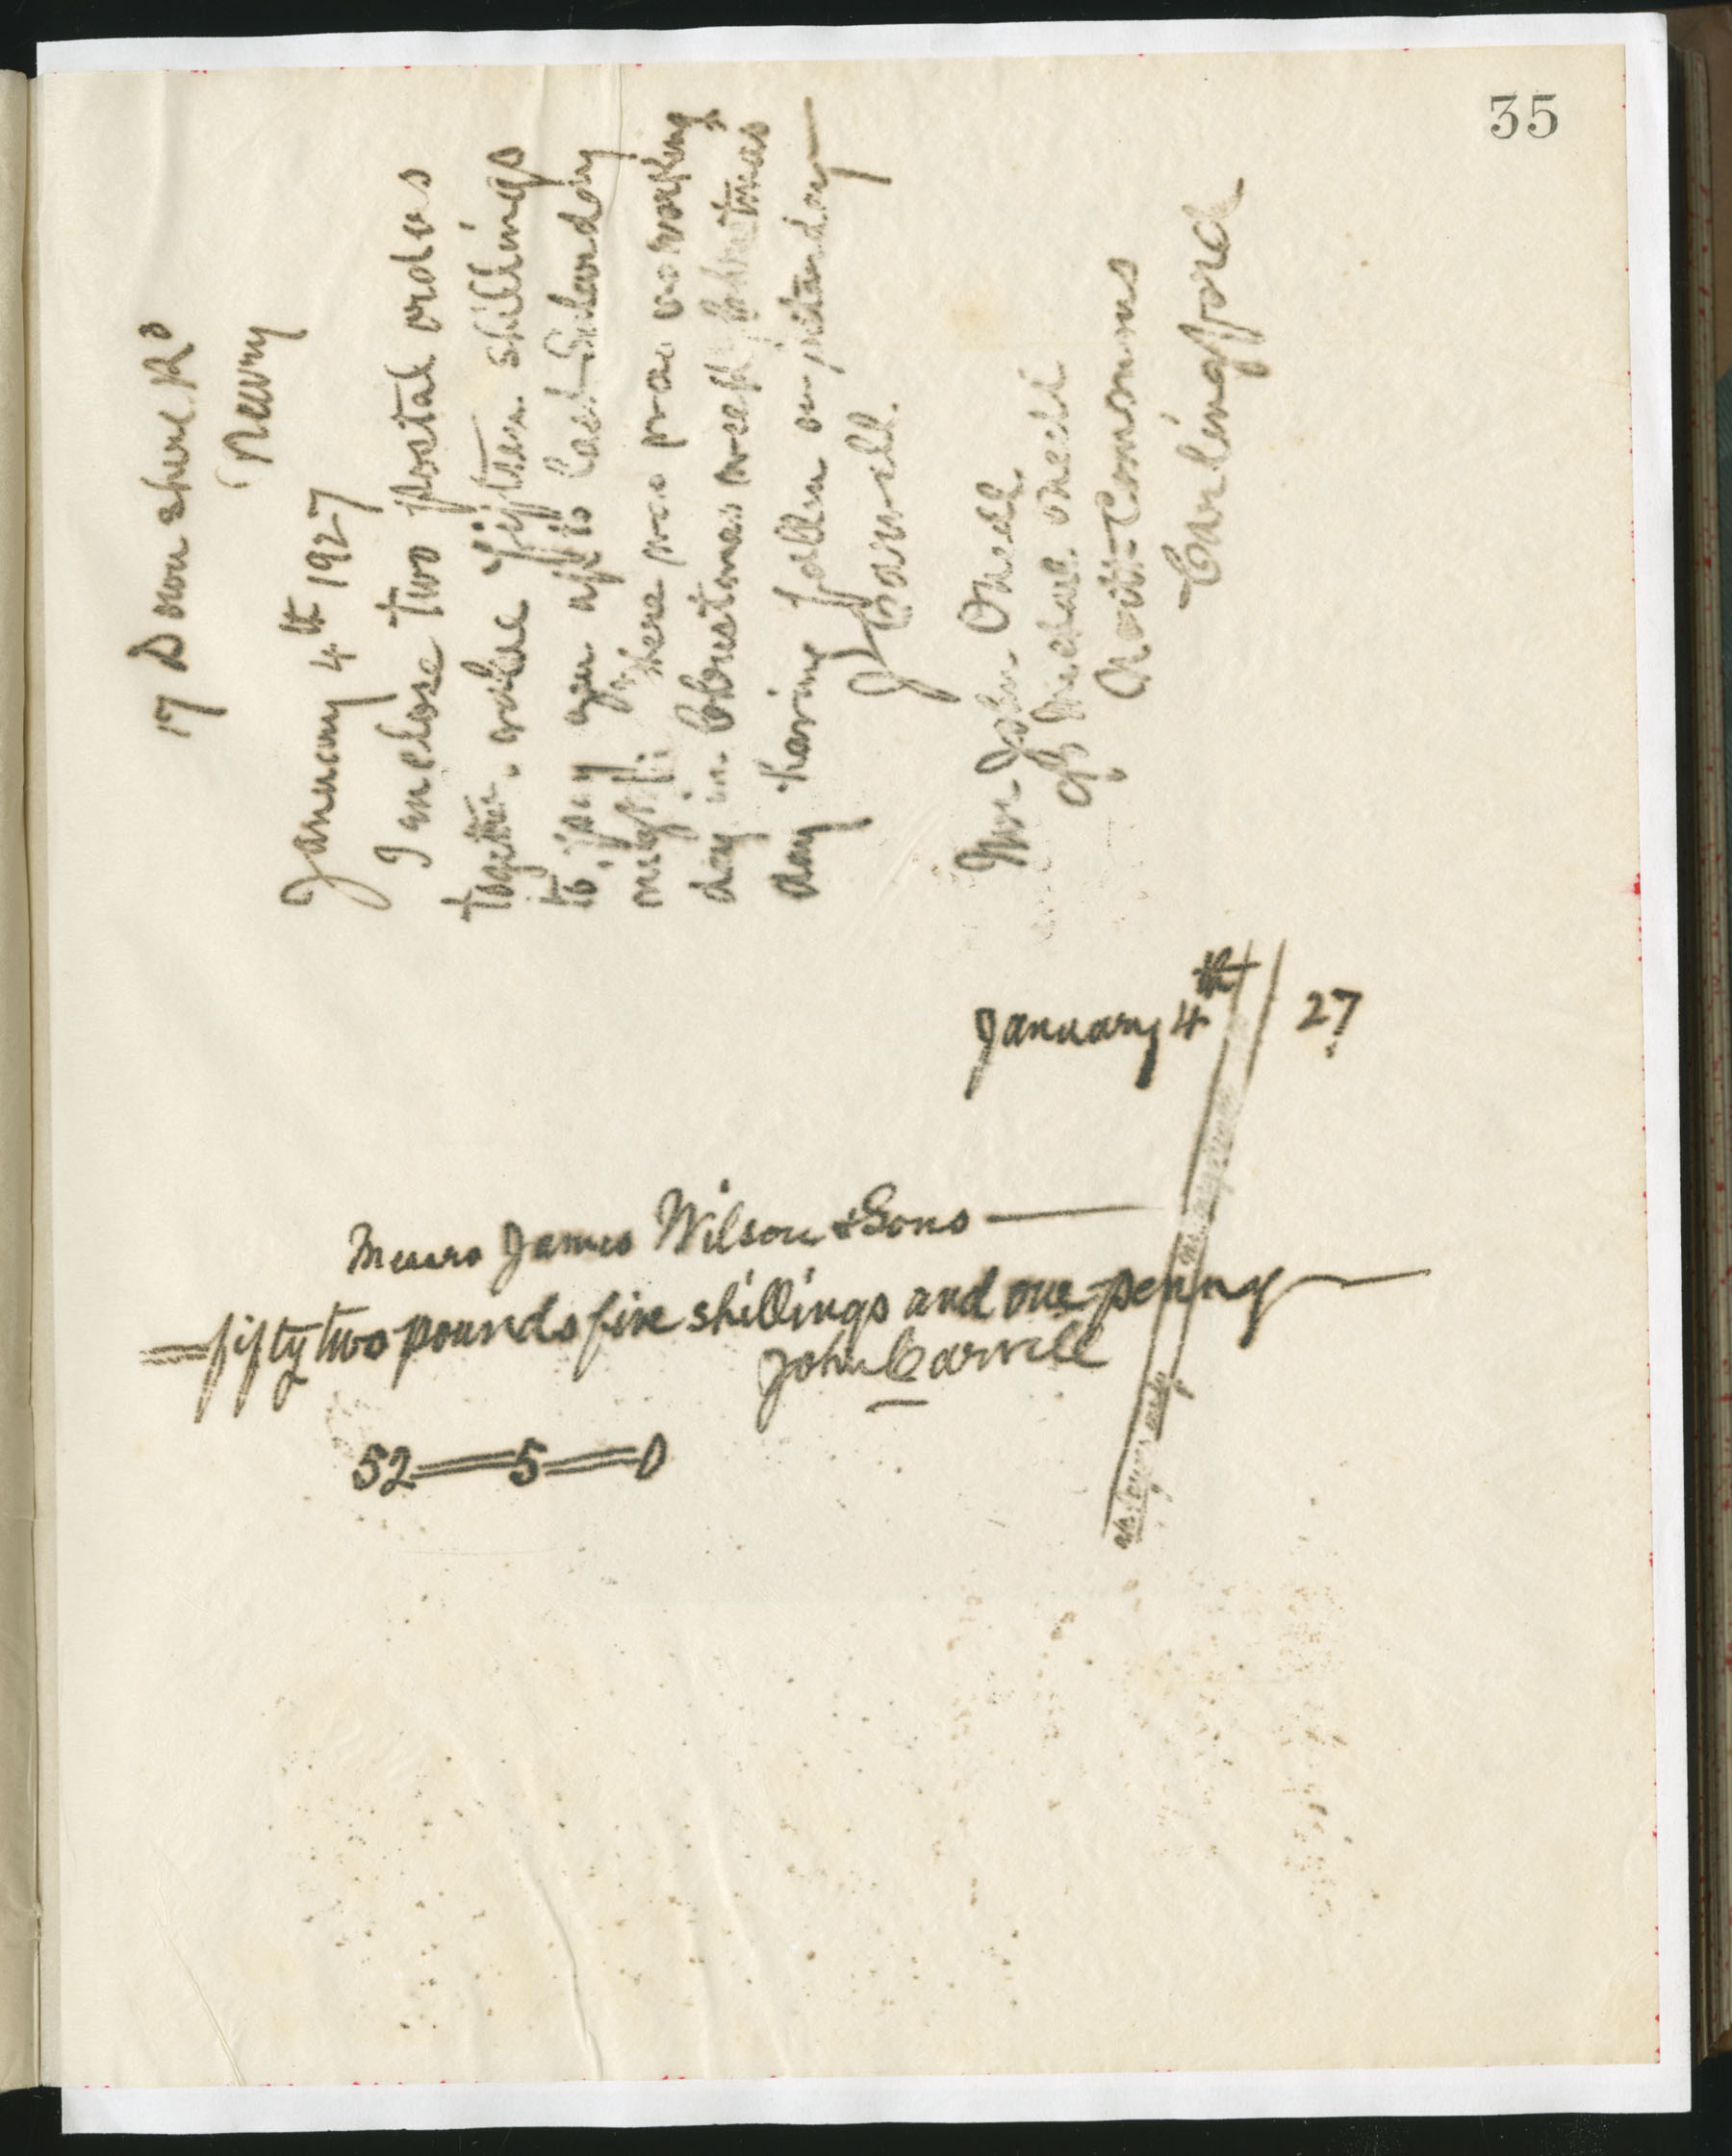 35
17 Downshire Rd
Newry
January 4th 1927
I enclose two postal orders
together value fifteen shillings
to pay you up to last Saturday
night. There was was no working
day in Christmas week Christmas
day having fallen on Saturday
J Carvill.
Mr John Oneill
of Michael Oneill
North Commons
Carlingford
January 4th 27
Messrs James Wilson & Sons
fifty two pounds five shillings and one penny
John Carvill
52 — 5 — 0